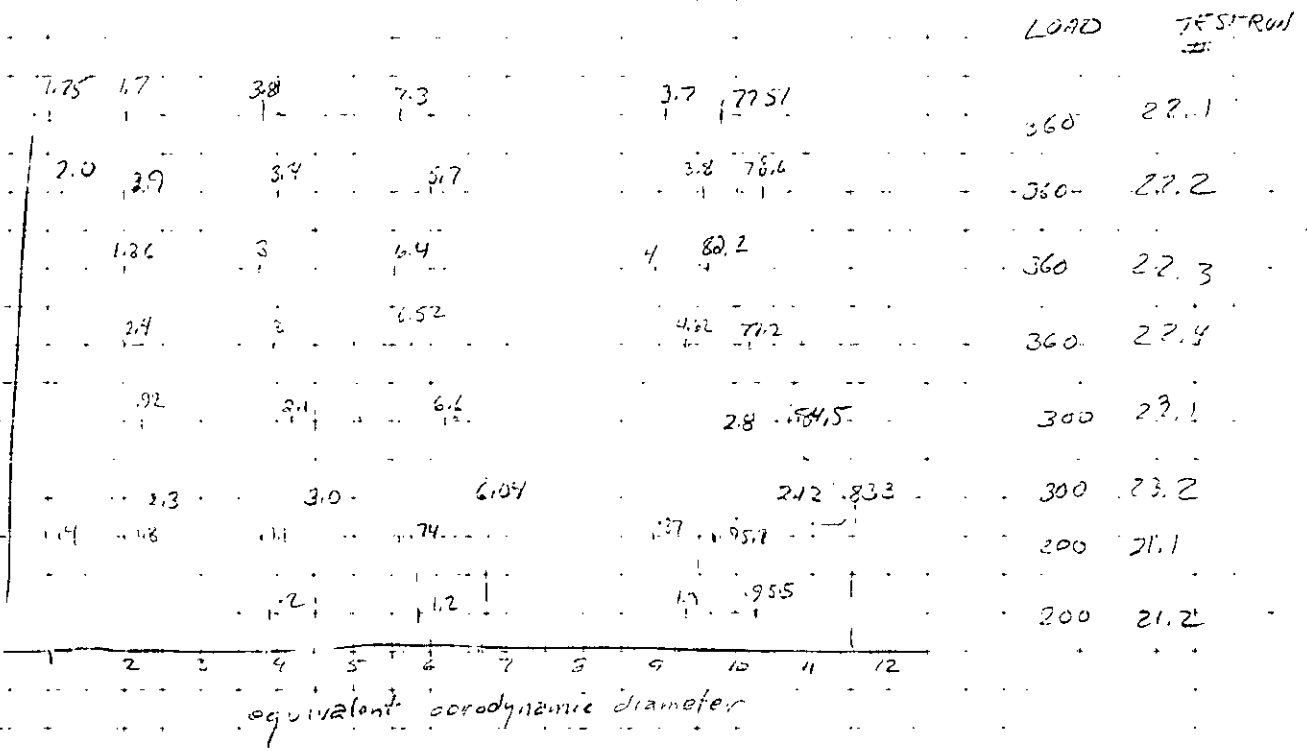 LOAD TEST RUN
#
1.7 3.8 7.3 3.7 77.51 360 22.1
2.0 3.9 3.4 5.7 3.8 360 22.2
3 6.4 4 82.2 360 22.3
2.4 6.52 77.2 360 22.4
.92 2.1 6.6 2.8 84.5 300 23.1
2.3 3.0 6.04 2.12 83.3 300 23.2
1.4 .74 200 21.1
.2 1.2 95.5 200 21.2
1 2 3 4 5 6 7 8 9 10 11 12
equivalent aerodynamic diameter